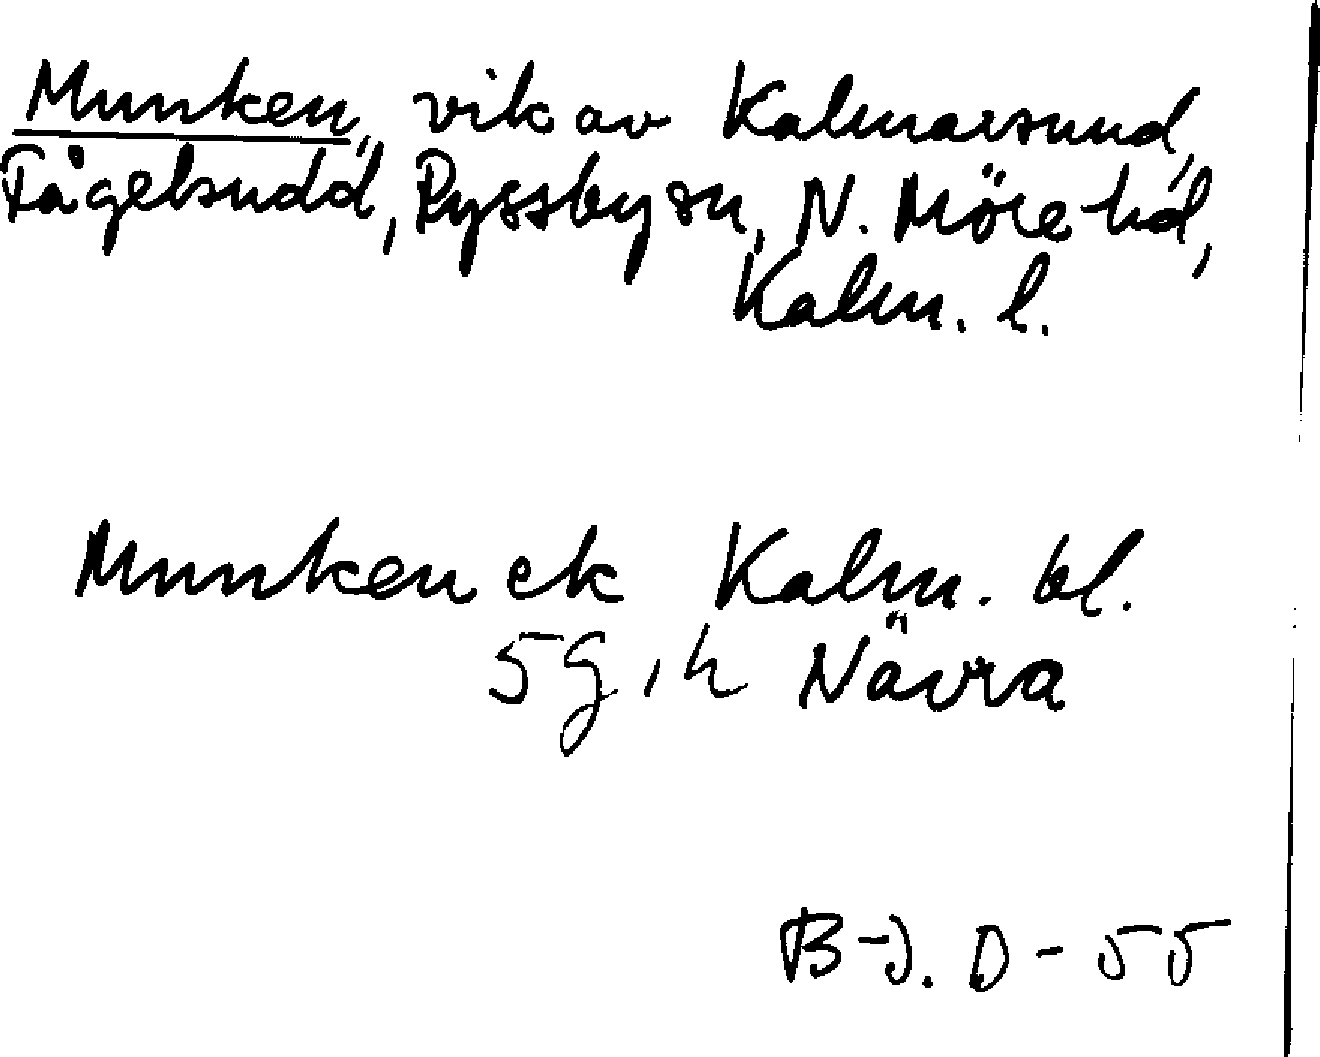 Munken, vik av Kalmarsund,
Fågelsudd, Ryssby sn, N. Möre hd,
Kalm. l.
Munken ek Kalm. bl.
5g, h Nävra
B-J. D-55